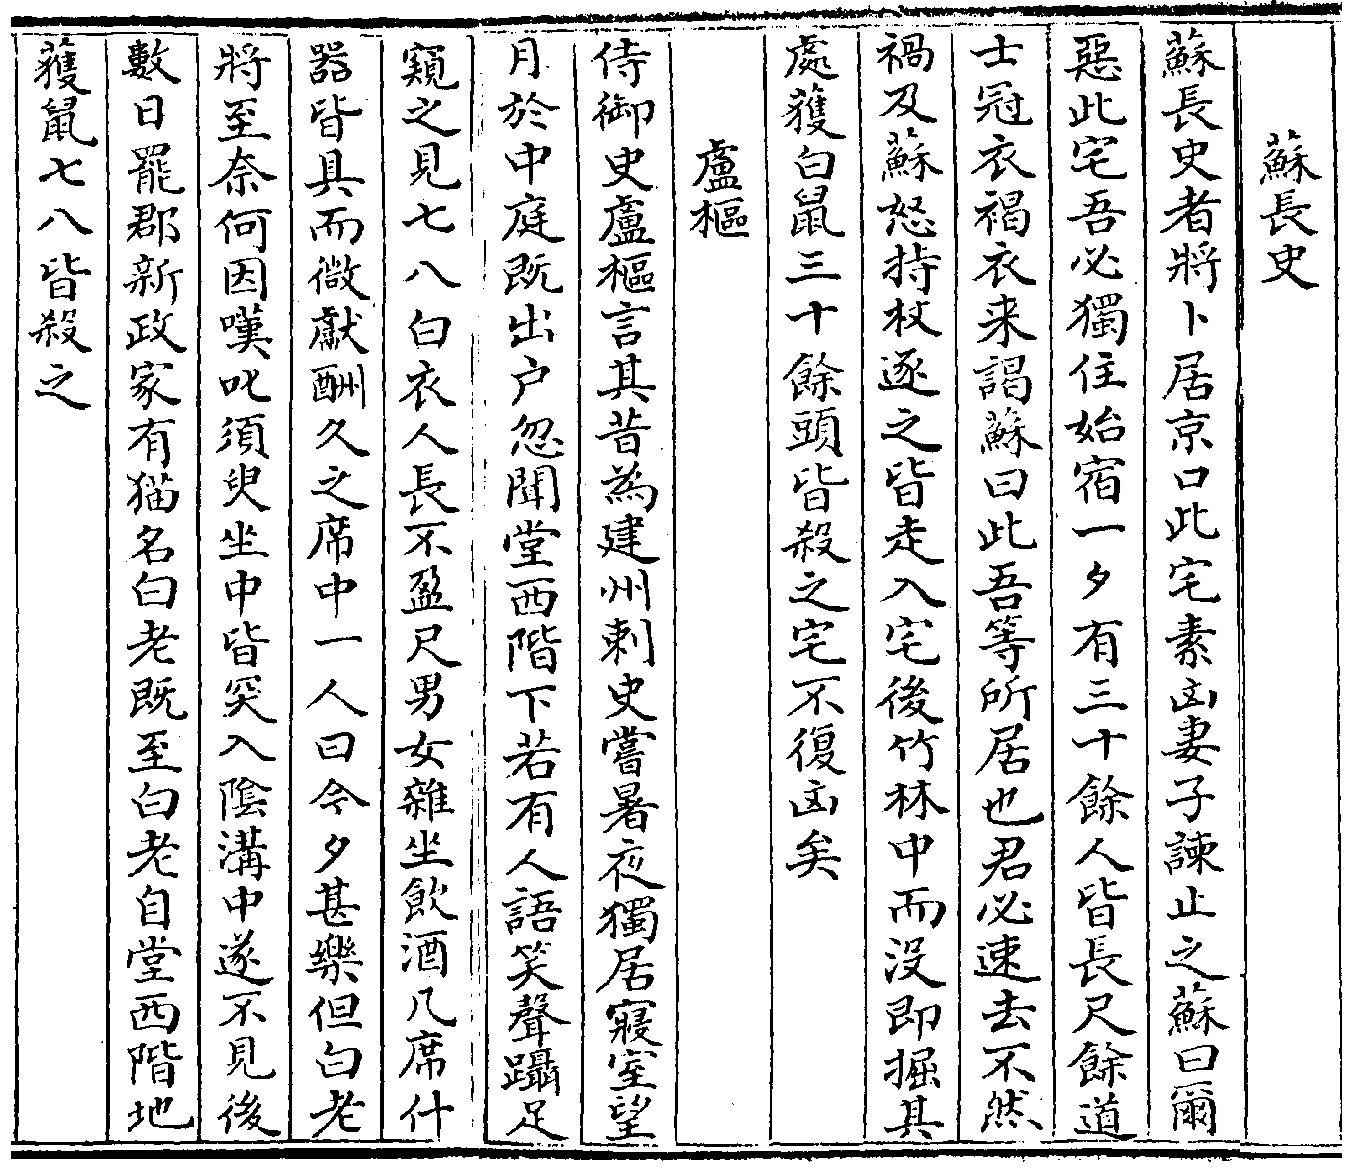 蘇長史
蘇長史者將卜居京口此宅素凶妻子諫止之蘇曰爾
惡此宅吾必獨住始宿一夕有三十餘人皆長尺餘道
士冠衣褐衣来謁蘇曰此吾等所居也君必速去不然
禍及蘇怒持杖逐之皆走入宅後竹林中而没即掘其
處獲白鼠三十餘頭皆殺之宅不復凶矣
盧樞
侍御史盧樞言其昔為建州刺史嘗暑夜獨居寢室望
月於中庭既出户忽聞堂西階下若有人語笑聲躡足
窺之見七八白衣人長不盈尺男女雜坐飲酒几席什
器皆具而微獻酬久之席中一人曰今夕甚樂但白老
將至奈何因嘆叱須臾坐中皆突入陰溝中遂不見後
數日罷郡新政家有猫名白老既至白老自堂西階地
獲鼠七八皆殺之